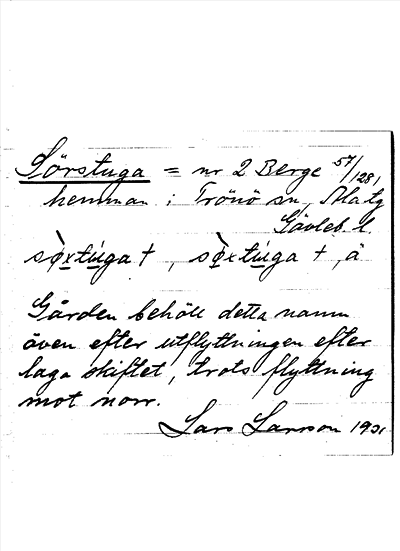 Sörstuga = nr 2 Berge 57/128,
hemman i Trönö sn, Ala tg
Gävleb. l.
sø̀xtúga +, sø̀xtúga +, å
Gården behöll detta namn
även efter utflyttningen efter
laga skiftet, trots flyttning
mot norr.
Lars Larsson 1931